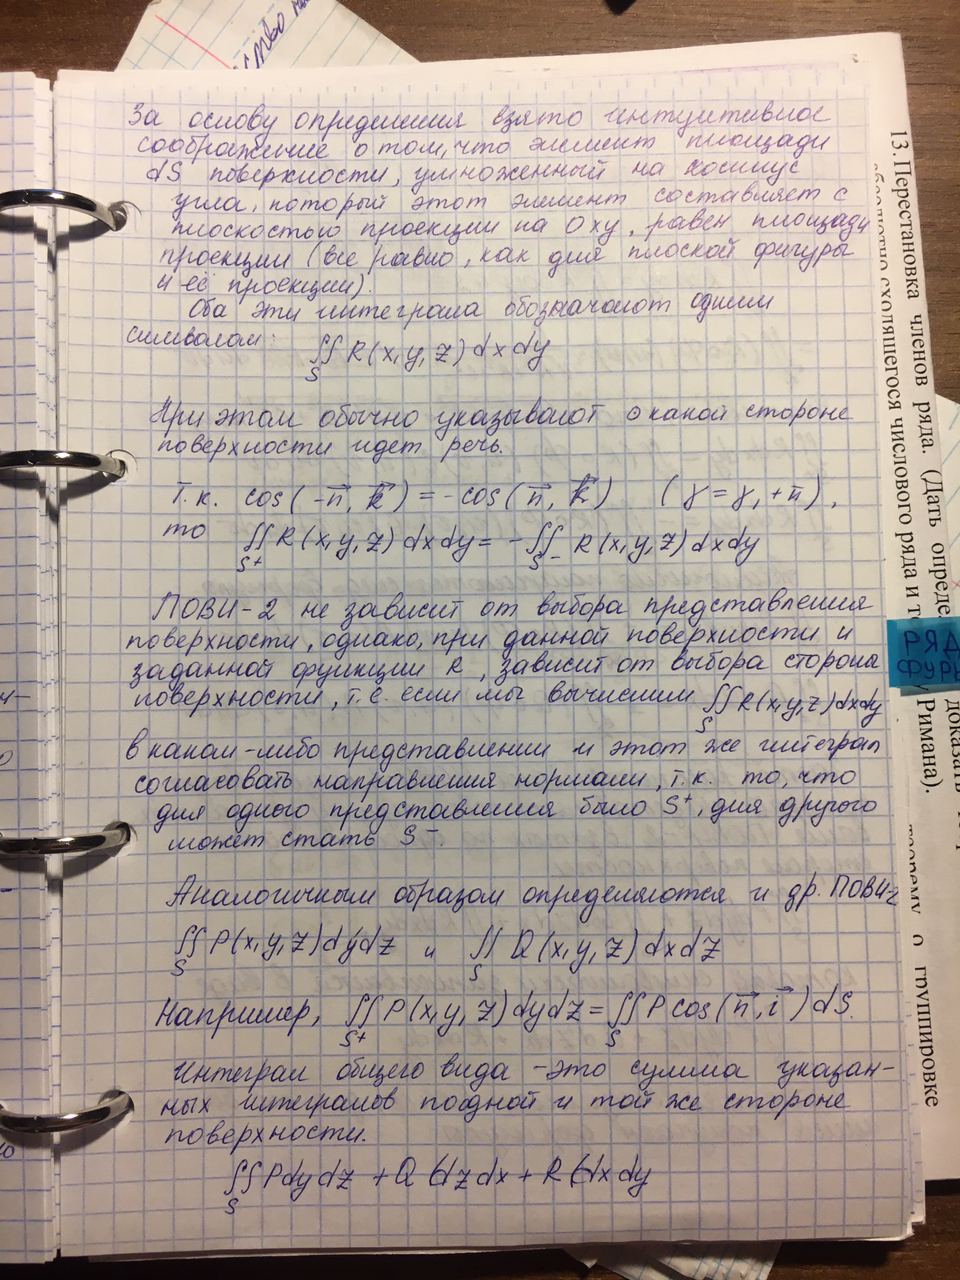 За основу определения взято интуитивное
соображение о том, что элемент площади
dS поверхности, умноженный на косинус
угла, который этот элемент составляет с
плоскостью проекции на Oxy, равен площади
проекции (все равно, как для плоской фигуры
и её проекции).
Оба эти интеграла обозначают одним
символом:
∬_S R(x,y,z) dxdy
При этом обычно указывают о какой стороне
поверхности идет речь.
Т.к. cos(-n⃗, k⃗) = -cos(n⃗, k⃗) (γ = γ, + π),
то
∬_{S⁺} R(x,y,z) dxdy = -∬_{S⁻} R(x,y,z) dxdy
ПОВИ-2 не зависит от выбора представления
поверхности, однако, при данной поверхности и
заданной функции R, зависит от выбора стороны
поверхности, т.е. если мы вычислим ∬_S R(x,y,z)dxdy
в каком-либо представлении и этот же интеграл
согласовать направления нормали, т.к. то, что
для одного представления было S⁺, для другого
может стать S⁻.
Аналогичным образом определяются и др. ПОВИ-2
∬_S P(x,y,z)dydz и ∬_S Q(x,y,z)dxdz
Например, ∬_{S⁺} P(x,y,z)dydz = ∬_S P cos(n⃗, i⃗) dS.
Интеграл общего вида - это сумма указан-
ных интегралов по одной и той же стороне
поверхности.
∬_S Pdydz + Q dzdx + R dxdy
13. Перестановка членов ряда. (Дать опреде
сходящегося числового ряда и
доказать
Римана).
теорему о группировке
РЯД
ФУРЬ
ство